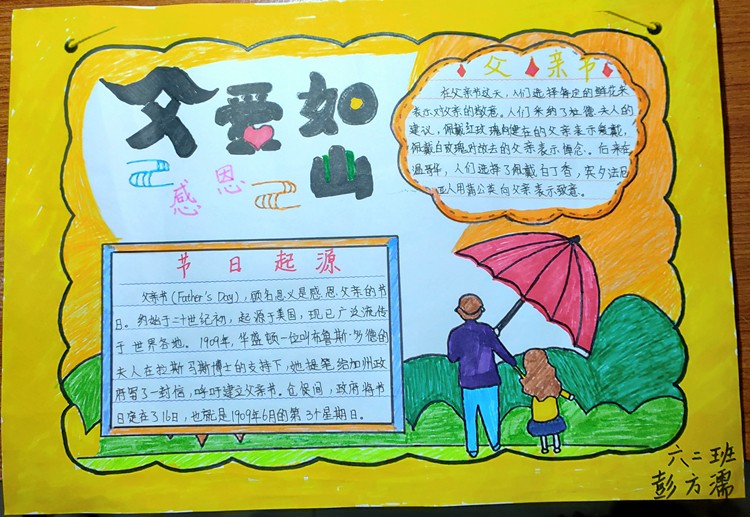 父爱如
山
感恩
父亲节
在父亲节这天，人们选择特定的鲜花来
表示对父亲的敬意。人们采纳了杜德夫人的
建议，佩戴红玫瑰向健在的父亲表示爱戴，
佩戴白玫瑰对故去的父亲表示悼念。后来在
温哥华，人们选择了佩戴白丁香，宾夕法尼
亚人用蒲公英向父亲表示致意。
节日起源
父亲节(Father's Day)，顾名思义是感恩父亲的节
日。约始于二十世纪初，起源于美国，现已广泛流传
于世界各地。1909年，华盛顿一位叫布鲁斯·多德的
夫人在拉斯马斯博士的支持下，她提笔给加州政
府写了一封信，呼吁建立父亲节。仓促间，政府将节
日定在了16日，也就是1909年6月的第3个星期日。
六二班
彭方濡